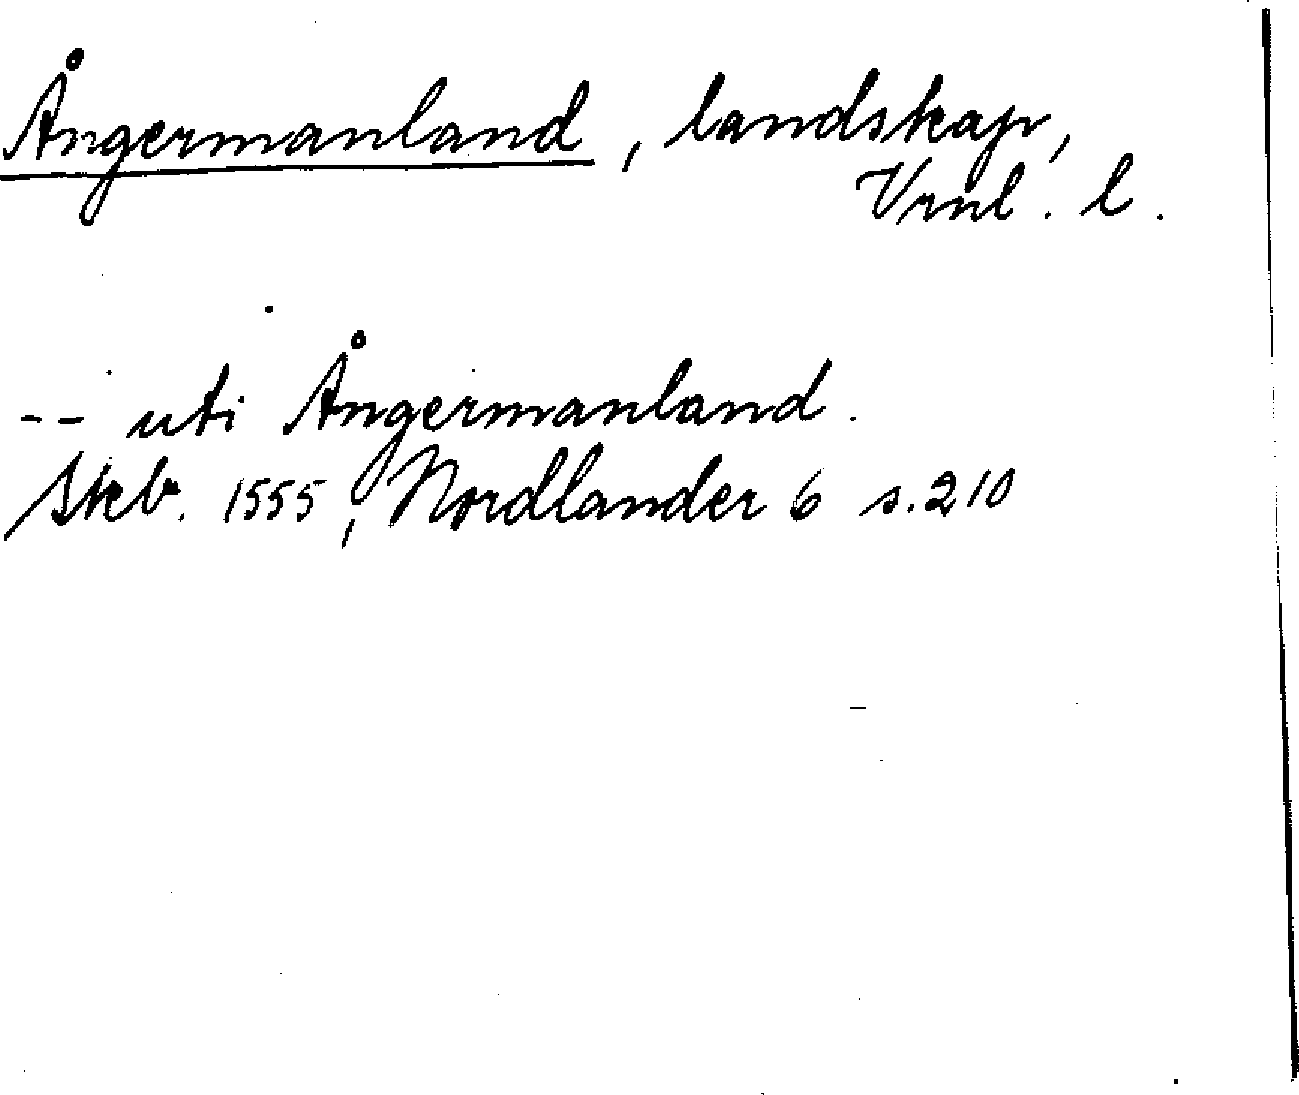 Ångermanland, landskap,
Vrnl. l.
-- uti Ångermanland.
Skb. 1555, Nordlander 6 s. 210